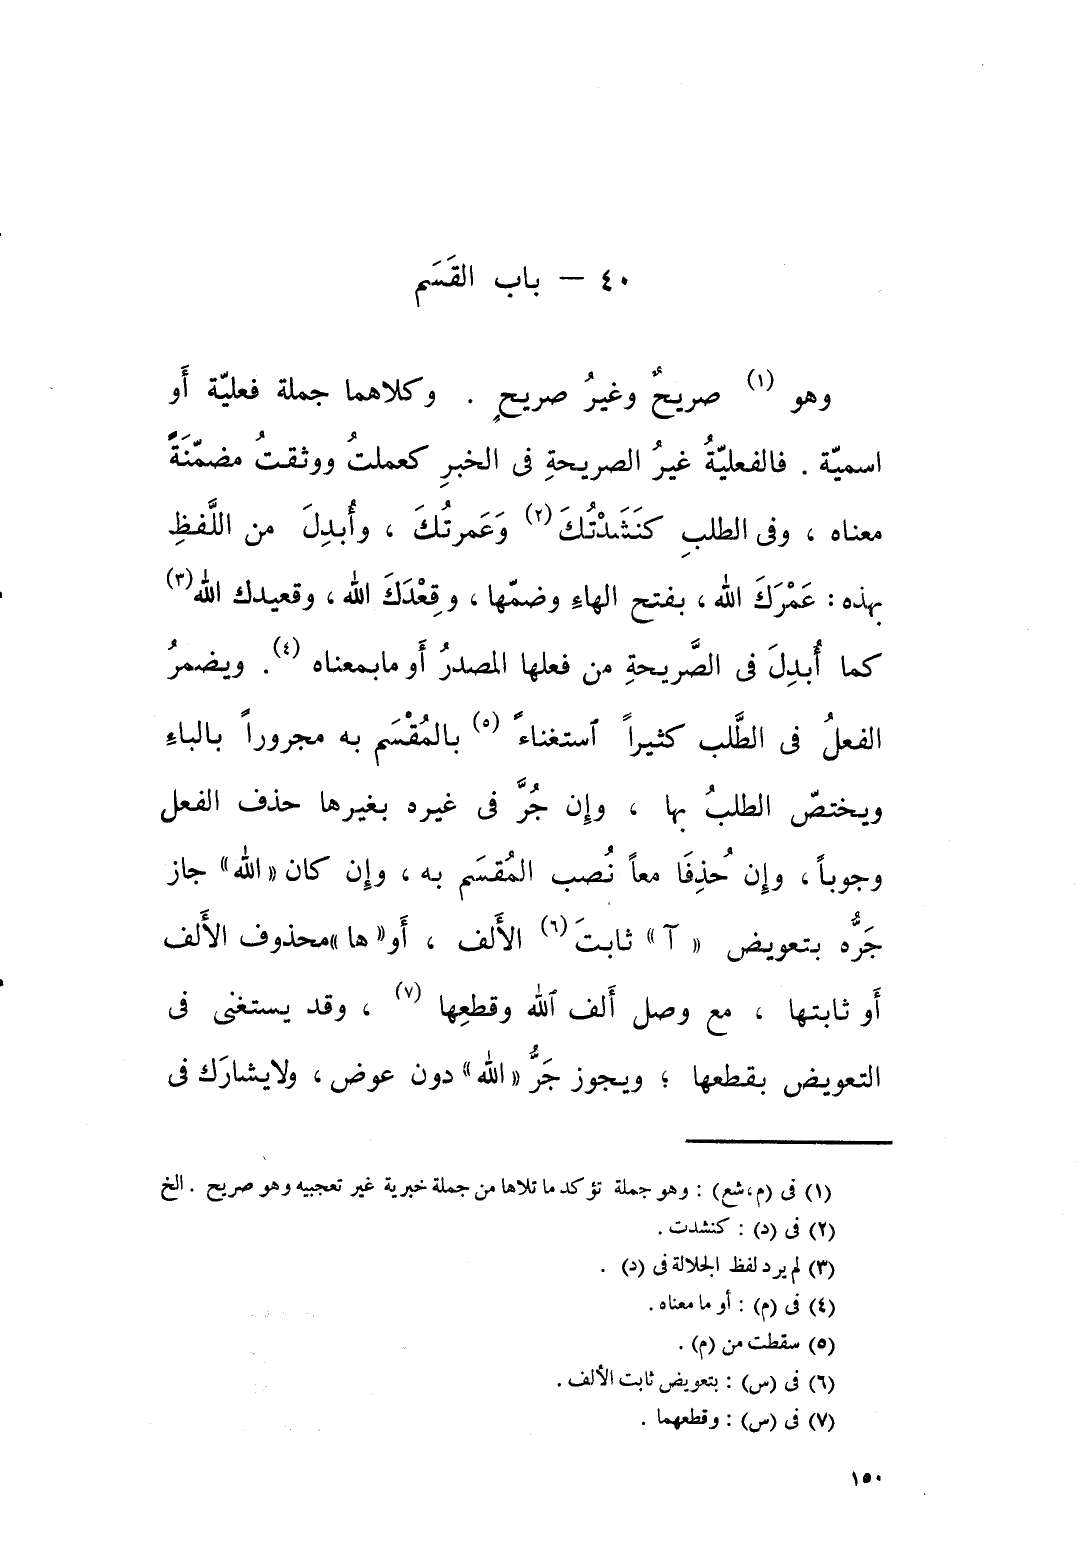 ٤٠ — باب القَسَم
وهو (١) صريحٌ وغيرُ صريحٍ . وكلاهما جملة فعليّة أَو
اسميّة . فالفعليّةُ غيرُ الصريحةِ فى الخبرِ كعملتُ ووثقتُ مضمّنَةً
معناه ، وفى الطلبِ كنَشَدْتُكَ (٢) وَعَمرتُكَ ، وأُبدِلَ من اللَّفظِ
بهذه : عَمْرَكَ الله ، بفتح الهاءِ وضمّها ، وقِعْدَكَ الله ، وقعيدك الله (٣)
كما أُبدِلَ فى الصَّريحةِ من فعلها المصدرُ أَو مابمعناه (٤) . ويضمرُ
الفعلُ فى الطَّلب كثيراً ٱستغناءً (٥) بالمُقْسَم به مجروراً بالباءِ
ويختصّ الطلبُ بها ، وإِن جُرَّ فى غيره بغيرها حذف الفعل
وجوباً ، وإِن حُذِفَا معاً نُصب المُقسَم به ، وإِن كان «الله» جاز
جَرُّه بتعويض « آ » ثابتَ (٦) الأَلف ، أَو« ها »محذوف الأَلف
أَو ثابتها ، مع وصل أَلف ٱلله وقطعِها (٧) ، وقد يستغنى فى
التعويض بقطعها ؛ ويجوز جَرُّ «الله» دون عوض ، ولايشارَك فى
(١) فى (م،شع) : وهو جملة تؤكد ما تلاها من جملة خبرية غير تعجبيه وهو صريح . الخ
(٢) فى (د) : كنشدت .
(٣) لم يرد لفظ الجلالة فى (د) .
(٤) فى (م) : أو ما معناه .
(٥) سقطت من (م) .
(٦) فى (س) : بتعويض ثابت الألف .
(٧) فى (س) : وقطعهما .
١٥٠